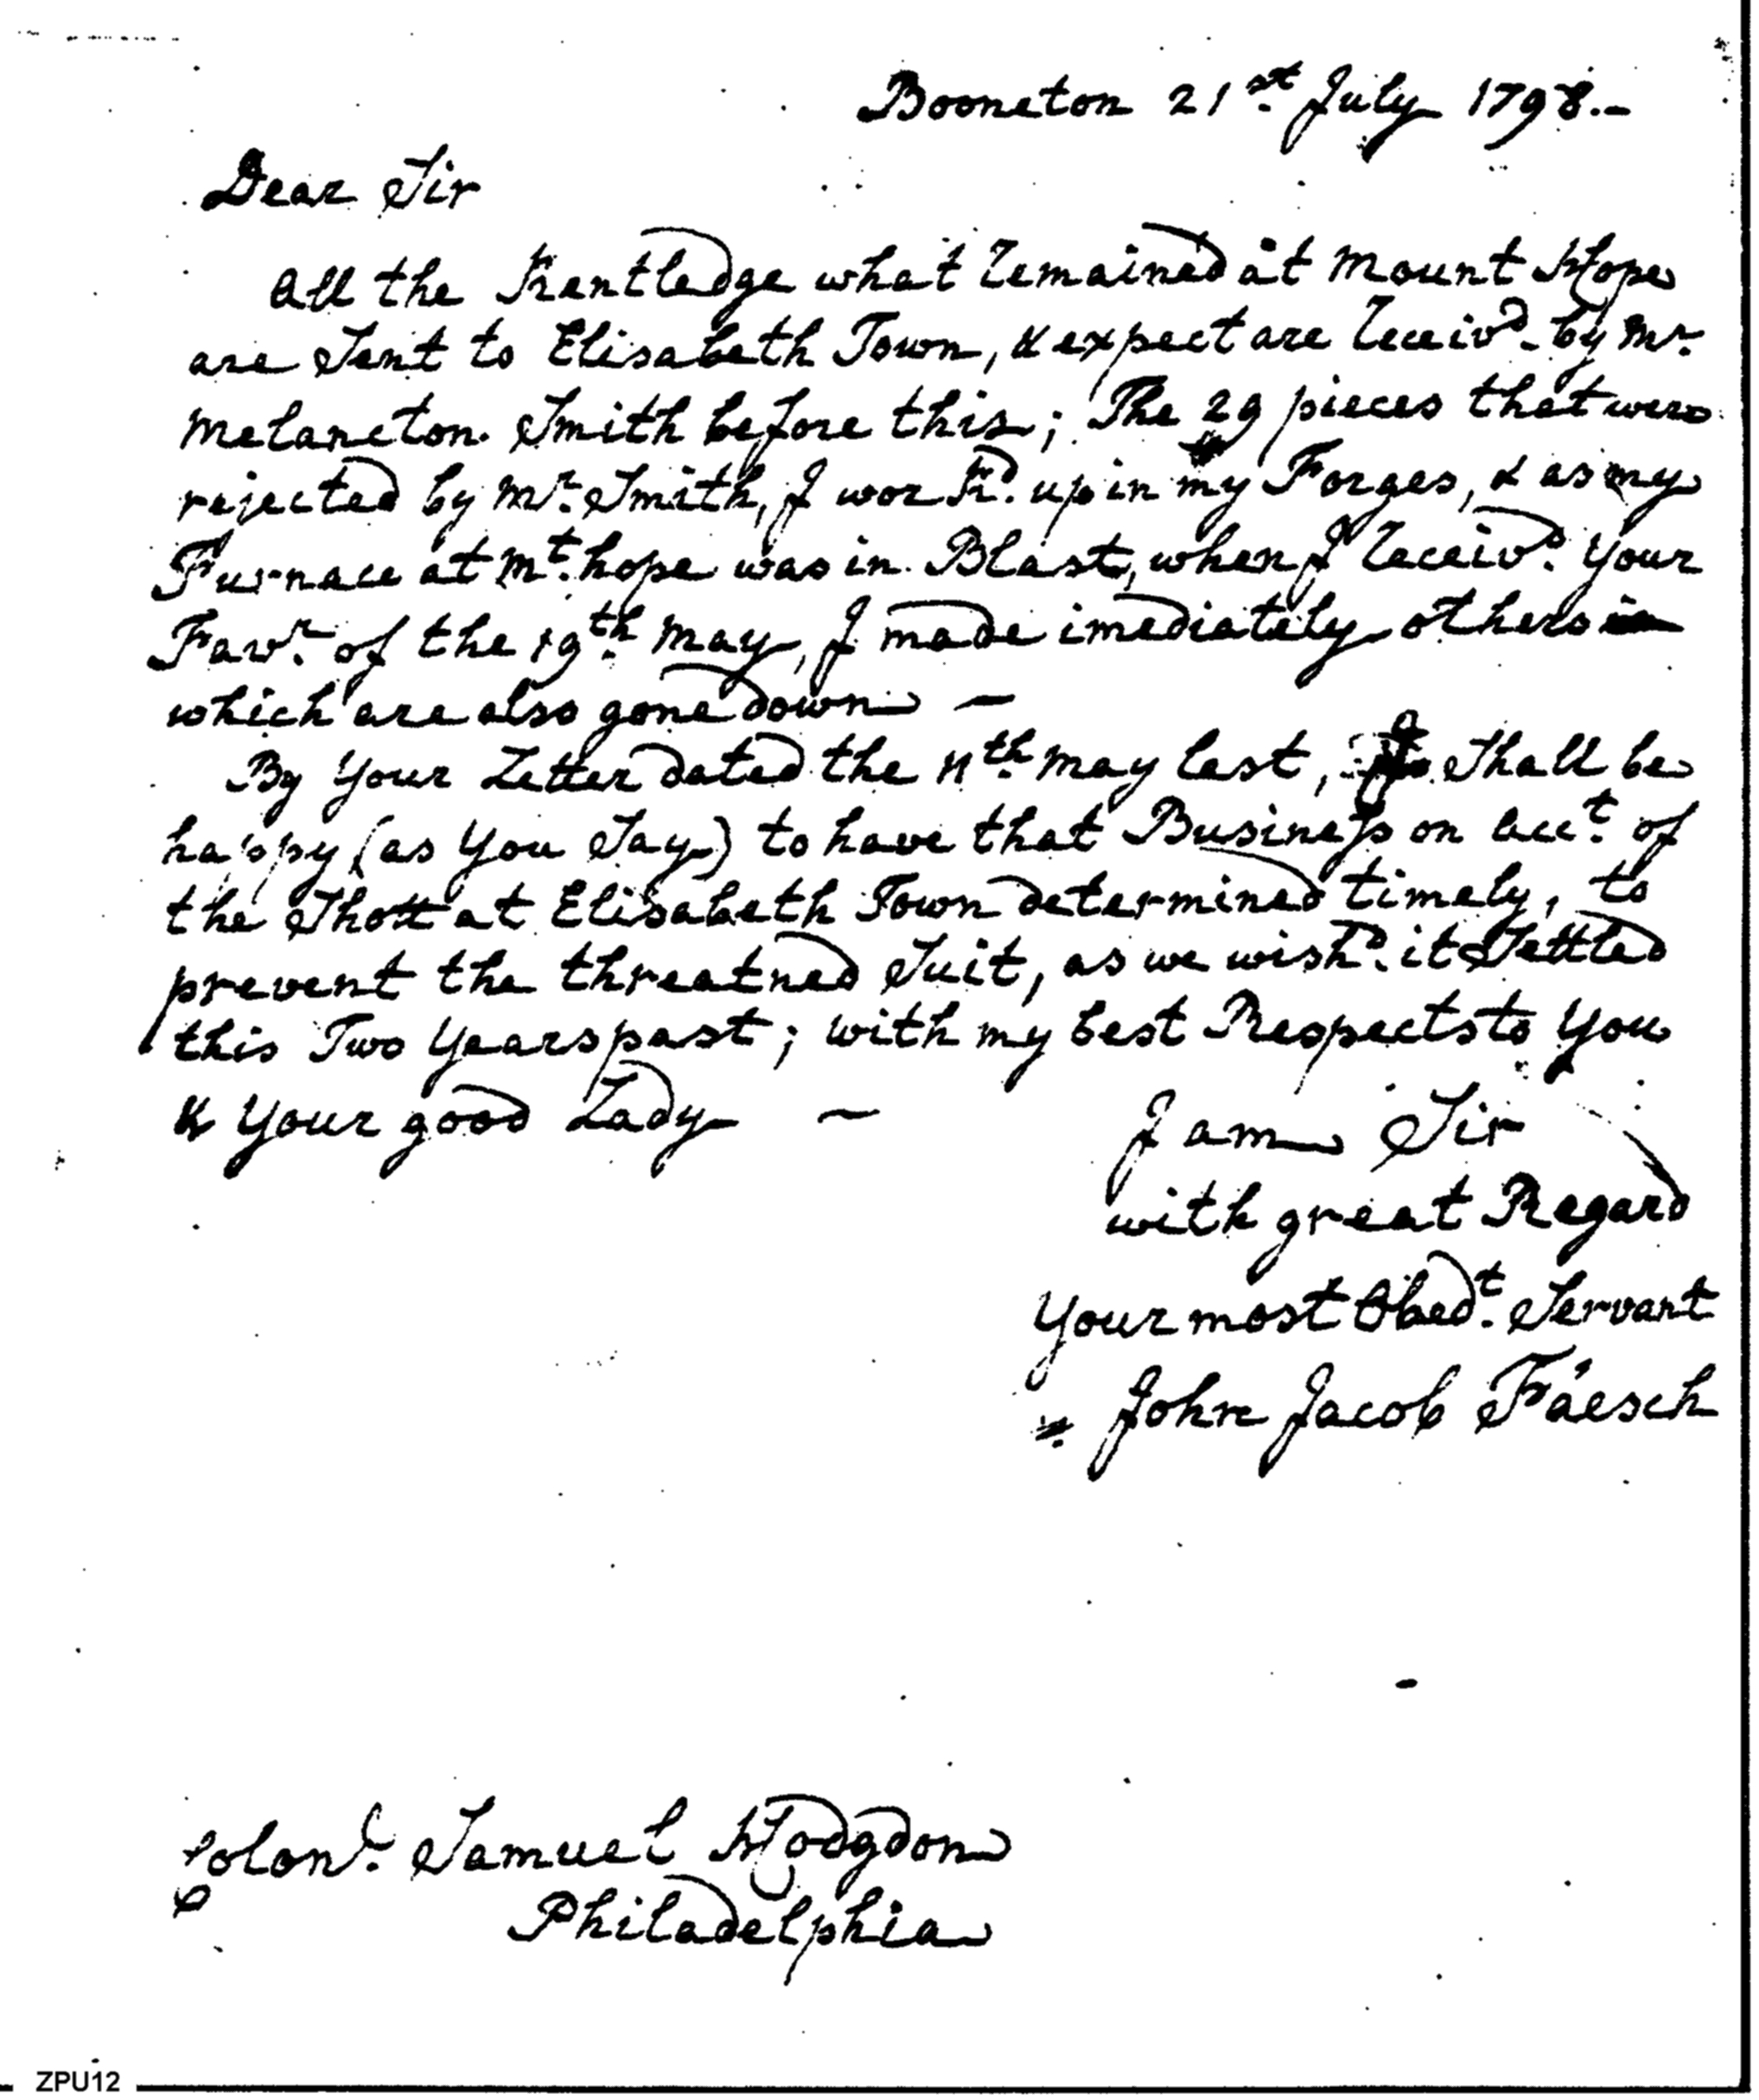 Booneton 21st. July 1798.-
Dear Sir
All the Kentledge what remained at Mount Hope
are Sent to Elisabeth Town, & expect are receivd. by Mr.
Melancton Smith before this; The 29 pieces that were
rejected by Mr. Smith, I workd. up in my Forges, & as my
Furnace at Mt. hope was in Blast, when I receivd. Your
Favr. of the 19th. May, I made imediately others
which are also gone down —
By Your Letter dated the 11th. May last, I Shall be
happy (as You Say) to have that Business on acct. of
the Shott at Elisabeth Town determined timely, to
prevent the threatned Suit, as we wishd. it Settled
this Two Years past; with my best Respects to You
& Your good Lady —
I am Sir
with great Regard
Your most Obedt. Servant
John Jacob Fáesch
Colonl. Samuel Hodgdon
Philadelphia
ZPU12